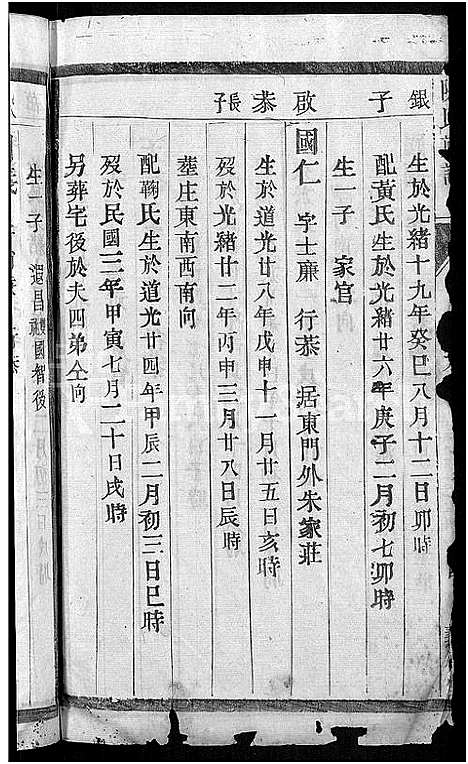 銀
子
啟
恭
長子
生於光緒十九年癸巳八月十二日卯時
配黃氏生於光緒廿六年庚子二月初七卯時
生一子 家官
國仁 字士廉 行恭 居東門外朱家莊
生於道光廿八年戊申十一月廿五日亥時
歿於光緒廿二年丙申三月廿八日辰時
塟庄東南西南向
配鞠氏生於道光廿四年甲辰二月初三日巳時
歿於民國三年甲寅七月二十日戌時
另葬宅後於夫四弟仝向
生一子 還昌 國智後